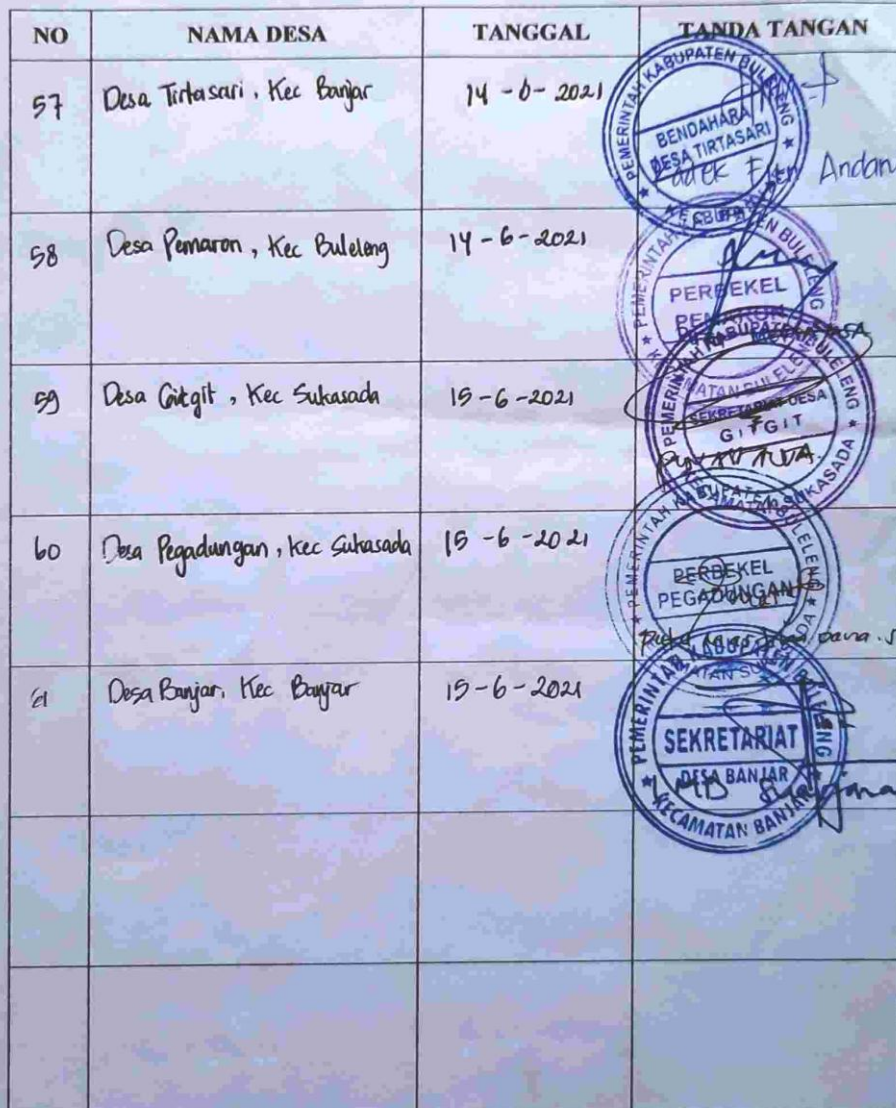 NO NAMA DESA TANGGAL TANDA TANGAN
57 Desa Tirtasari, Kec Banjar 14-6-2021
PEMERINTAH KABUPATEN BULELENG
BENDAHARA
DESA TIRTASARI
Andan
58 Desa Pemaron, Kec Buleleng 14-6-2021
PERBEKEL
PEMARON
59 Desa Gitgit, Kec Sukasada 15-6-2021
PEMERINTAH KABUPATEN BULELENG
SEKRETARIAT DESA
GITGIT
KECAMATAN SUKASADA
60 Desa Pegadungan, Kec Sukasada 15-6-2021
PEMERINTAH KABUPATEN BULELENG
PERBEKEL
PEGADUNGAN
61 Desa Banjar, Kec Banjar 15-6-2021
PEMERINTAH KABUPATEN BULELENG
SEKRETARIAT
DESA BANJAR
KECAMATAN BANJAR